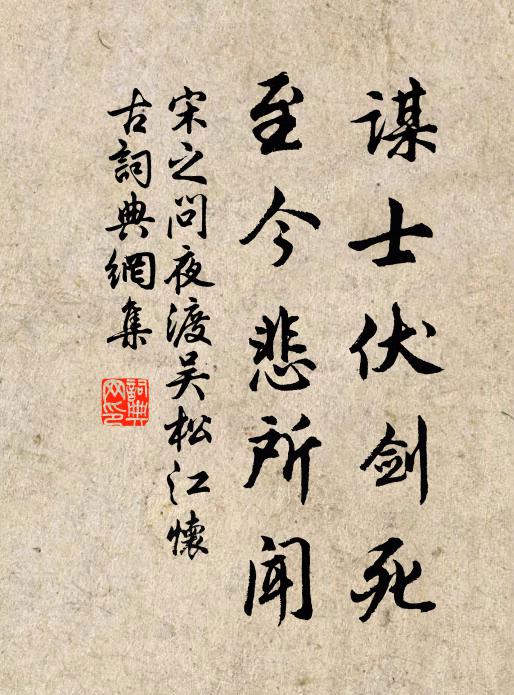 谋士伏剑死
至今悲所闻
宋之问夜渡吴松江怀
古词典網集
詞典
网印